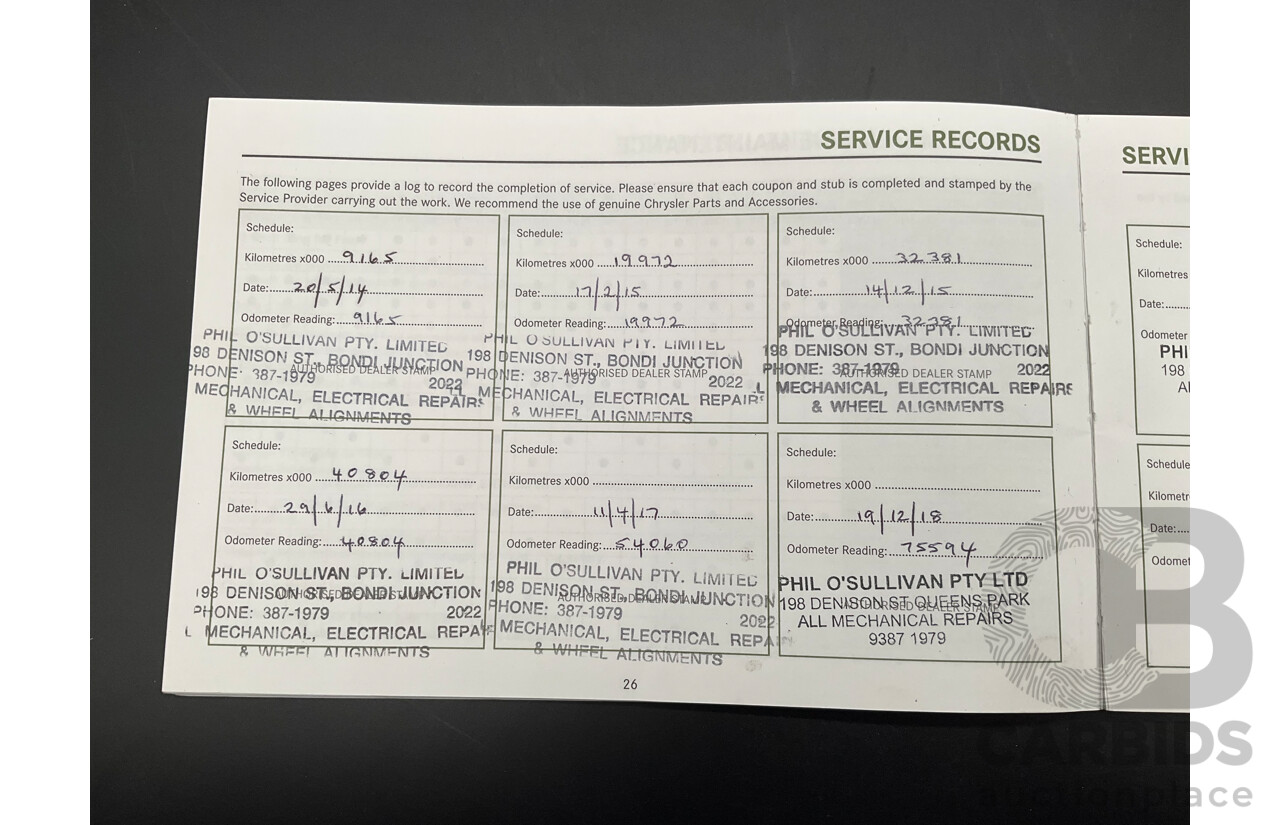 SERVICE RECORDS
The following pages provide a log to record the completion of service. Please ensure that each coupon and stub is completed and stamped by the
Service Provider carrying out the work. We recommend the use of genuine Chrysler Parts and Accessories.
Schedule:
Kilometres x000 9165
Date: 20/5/14
Odometer Reading: 9165
PHIL O'SULLIVAN PTY. LIMITED
98 DENISON ST., BONDI JUNCTION
AUTHORISED DEALER STAMP
PHONE: 387-1979 2022
MECHANICAL, ELECTRICAL REPAIRS
& WHEEL ALIGNMENTS
Schedule:
Kilometres x000 19972
Date: 17/2/15
Odometer Reading: 19972
PHIL O'SULLIVAN PTY. LIMITED
198 DENISON ST., BONDI JUNCTION
AUTHORISED DEALER STAMP
PHONE: 387-1979 2022
LL MECHANICAL, ELECTRICAL REPAIRS
& WHEEL ALIGNMENTS
Schedule:
Kilometres x000 32381
Date: 14/12/15
Odometer Reading: 32381
PHIL O'SULLIVAN PTY. LIMITED
198 DENISON ST., BONDI JUNCTION
PHONE: 387-1979 2022
AUTHORISED DEALER STAMP
L MECHANICAL, ELECTRICAL REPAIRS
& WHEEL ALIGNMENTS
Schedule:
Kilometres x000 40804
Date: 29/6/16
Odometer Reading: 40804
PHIL O'SULLIVAN PTY. LIMITED
198 DENISON ST., BONDI JUNCTION
AUTHORISED DEALER STAMP
PHONE: 387-1979 2022
L MECHANICAL, ELECTRICAL REPAI
& WHEEL ALIGNMENTS
Schedule:
Kilometres x000
Date: 11/4/17
Odometer Reading: 54060
PHIL O'SULLIVAN PTY. LIMITED
198 DENISON ST., BONDI JUNCTION
AUTHORISED DEALER STAMP
PHONE: 387-1979 2022
MECHANICAL, ELECTRICAL REPAI
& WHEEL ALIGNMENTS
Schedule:
Kilometres x000
Date: 19/12/18
Odometer Reading: 75594
PHIL O'SULLIVAN PTY LTD
198 DENISON ST QUEENS PARK
AUTHORISED DEALER STAMP
ALL MECHANICAL REPAIRS
9387 1979
26
SERVI
Schedule:
Kilometres
Date:
Odometer
PHI
198
Al
Schedule
Kilometr
Date:
Odomet
CARBIDS
auctionplace